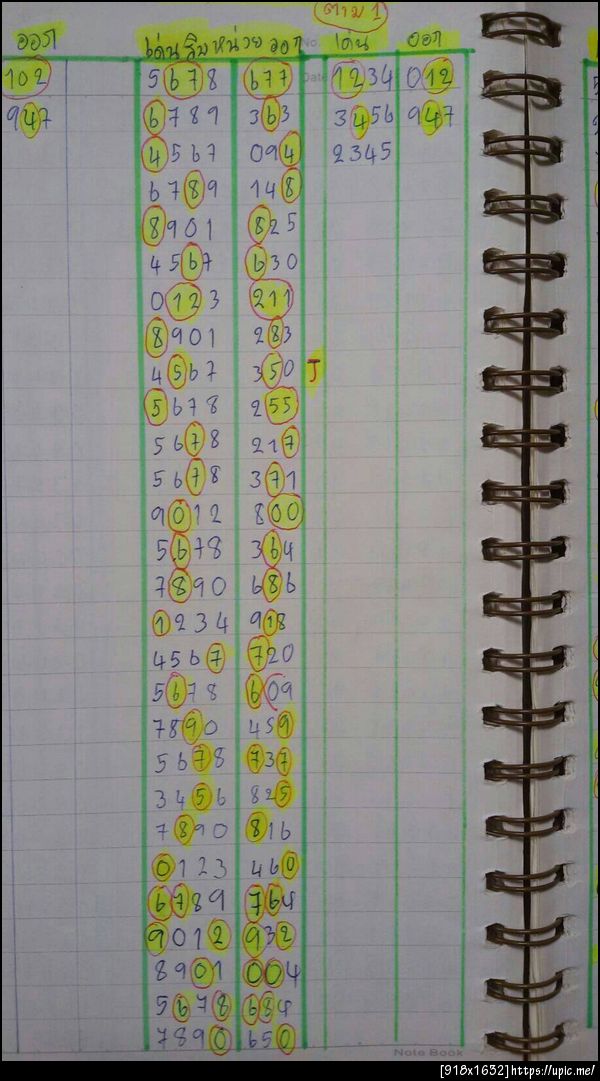 ตาม 1
ออก เด่นสิบหน่วย ออก No. เด่น ออก
102 5678 677 Date 1234 012
947 6789 363 3456 947
4567 094 2345
6789 148
8901 825
4567 630
0123 211
8901 283
4567 350 J
5678 255
5678 217
5678 371
9012 800
5678 364
7890 686
1234 918
4567 720
5678 609
7890 459
5678 737
3456 825
7890 816
0123 460
6789 764
9012 932
8901 004
5678 684
7890 650
Note Book
[918x1632]https://upic.me/